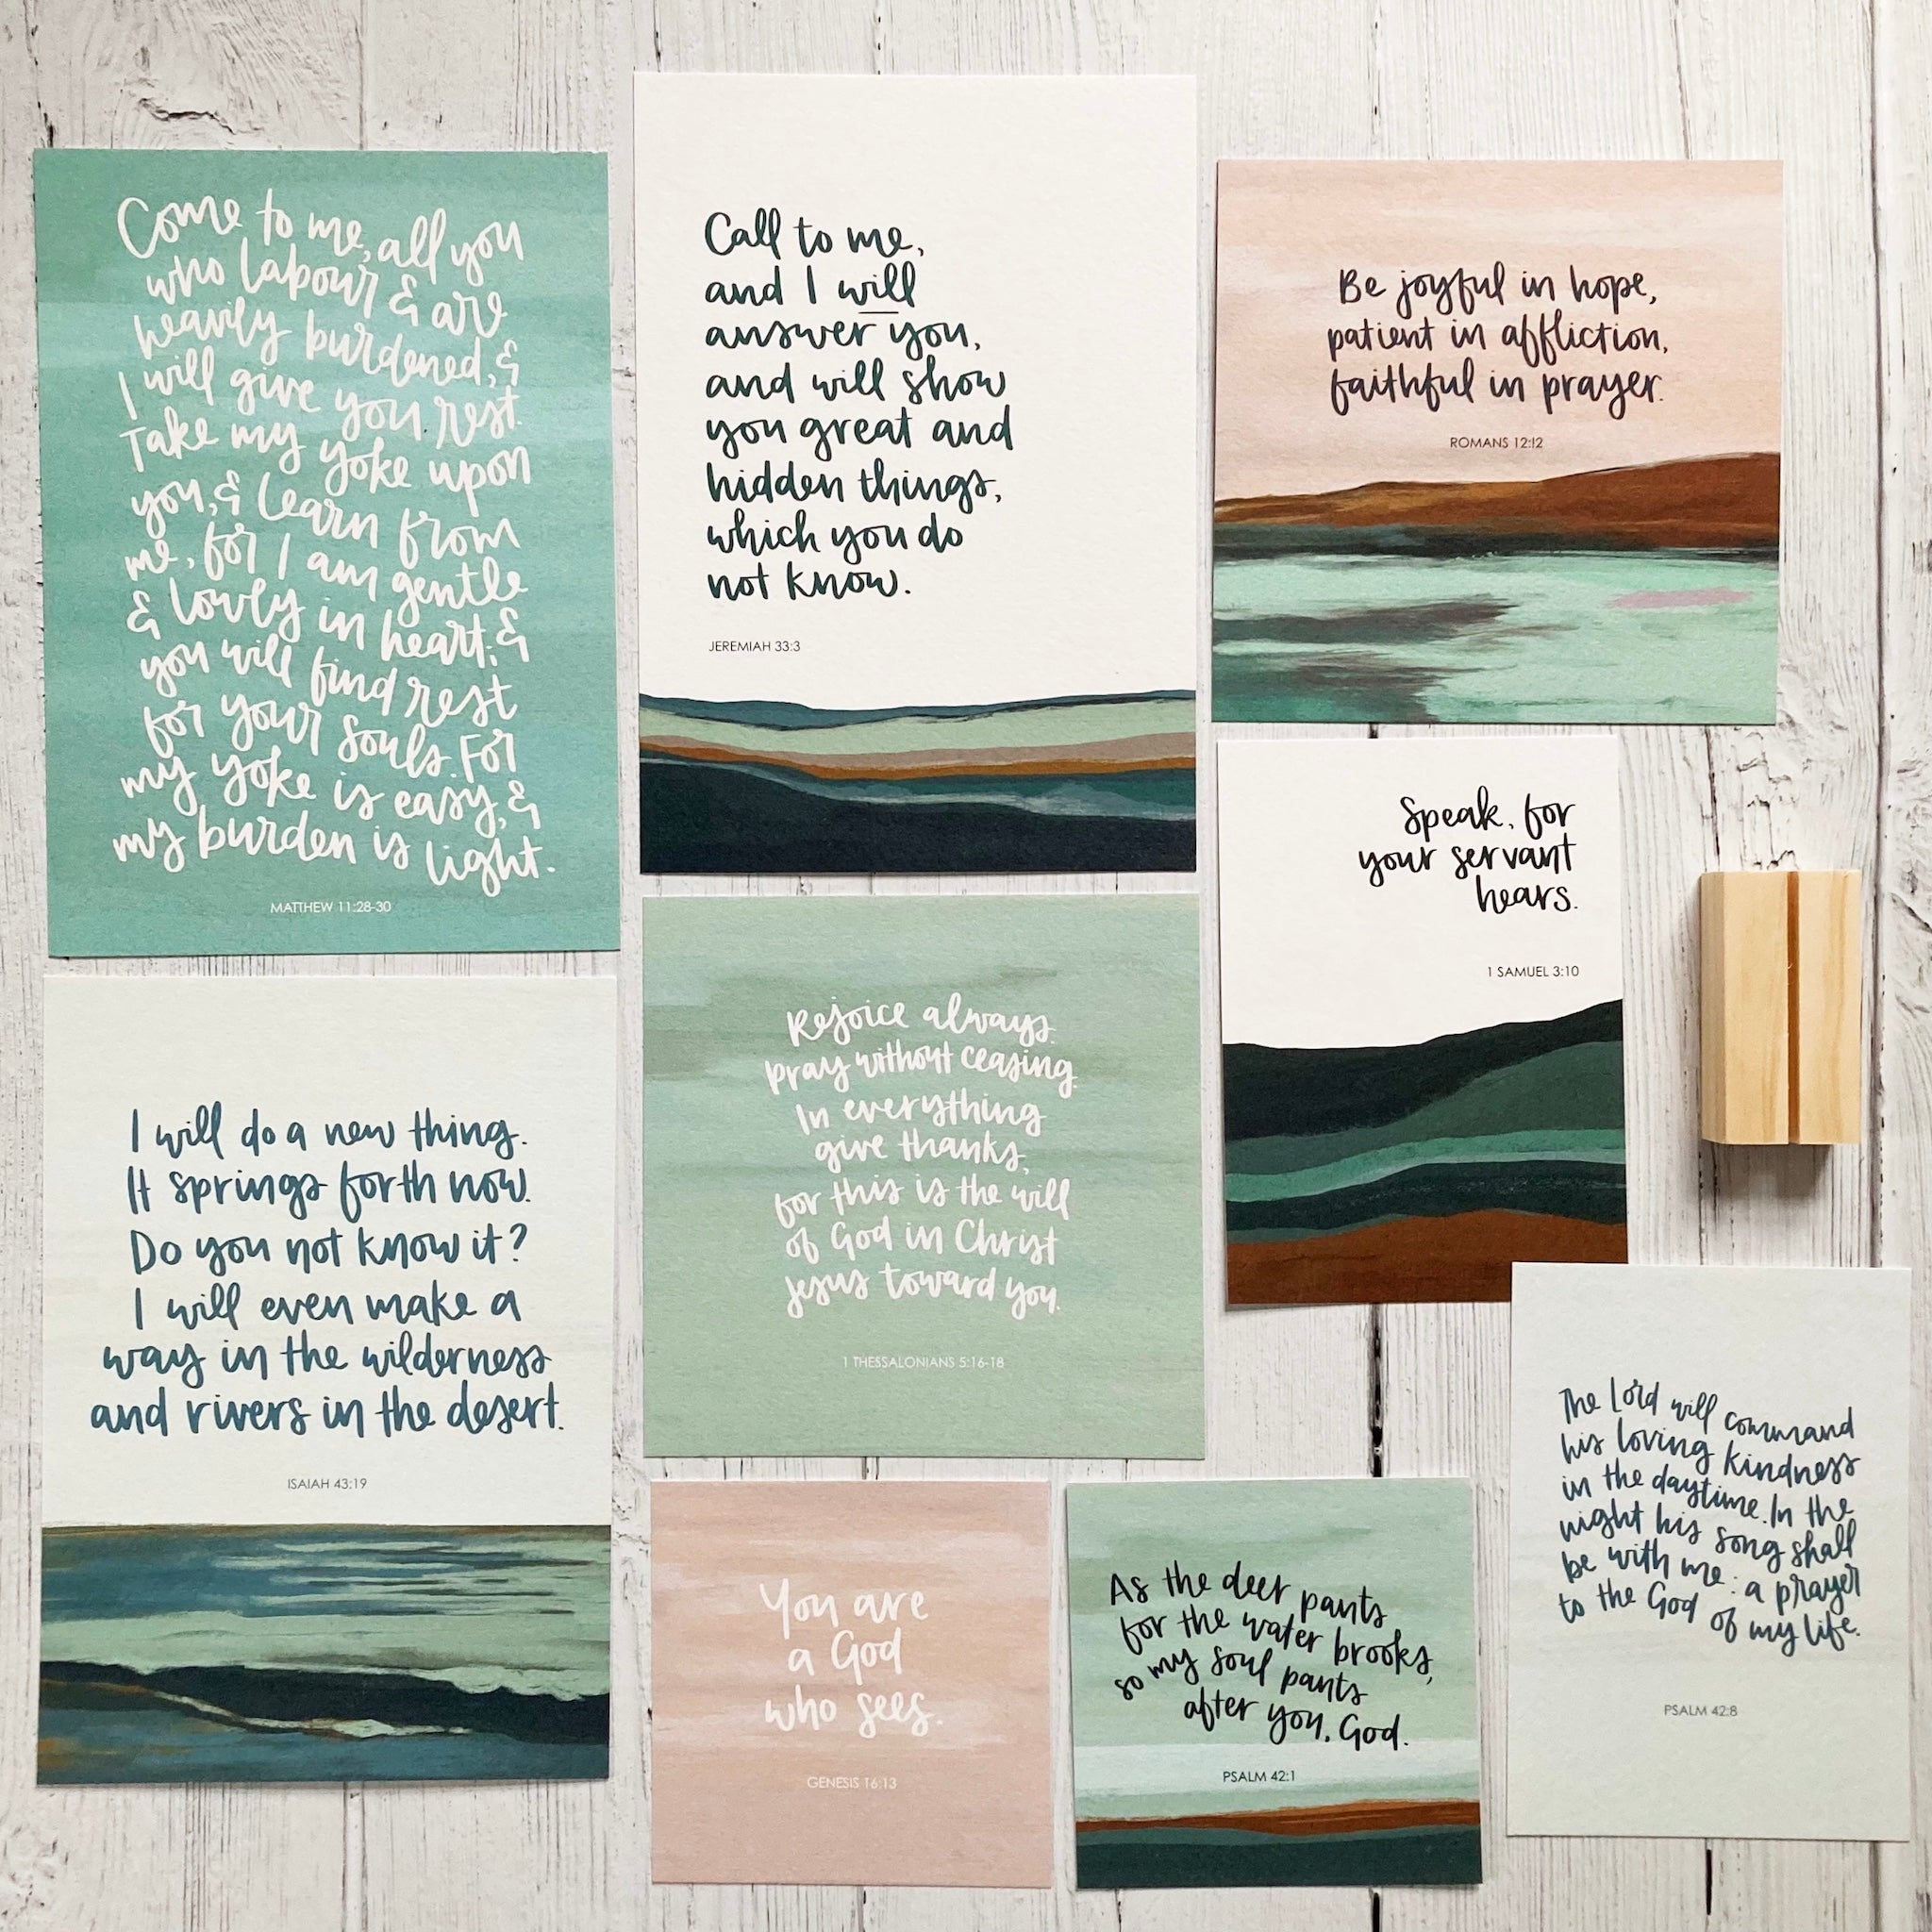 Come to me, all you
who labour & are
heavily burdened, &
I will give you rest.
Take my yoke upon
you, & learn from
me, for I am gentle
& lowly in heart; &
you will find rest
for your souls. For
my yoke is easy, &
my burden is light.
MATTHEW 11:28-30
Call to me,
and I will
answer you,
and will show
you great and
hidden things,
which you do
not know.
JEREMIAH 33:3
Be joyful in hope,
patient in affliction,
faithful in prayer.
ROMANS 12:12
Speak, for
your servant
hears.
1 SAMUEL 3:10
I will do a new thing.
It springs forth now.
Do you not know it?
I will even make a
way in the wilderness
and rivers in the desert.
ISAIAH 43:19
Rejoice always.
Pray without ceasing.
In everything
give thanks,
for this is the will
of God in Christ
Jesus toward you.
1 THESSALONIANS 5:16-18
You are
a God
who sees.
GENESIS 16:13
As the deer pants
for the water brooks,
so my soul pants
after you, God.
PSALM 42:1
The Lord will command
his loving kindness
in the daytime. In the
night his song shall
be with me: a prayer
to the God of my life.
PSALM 42:8